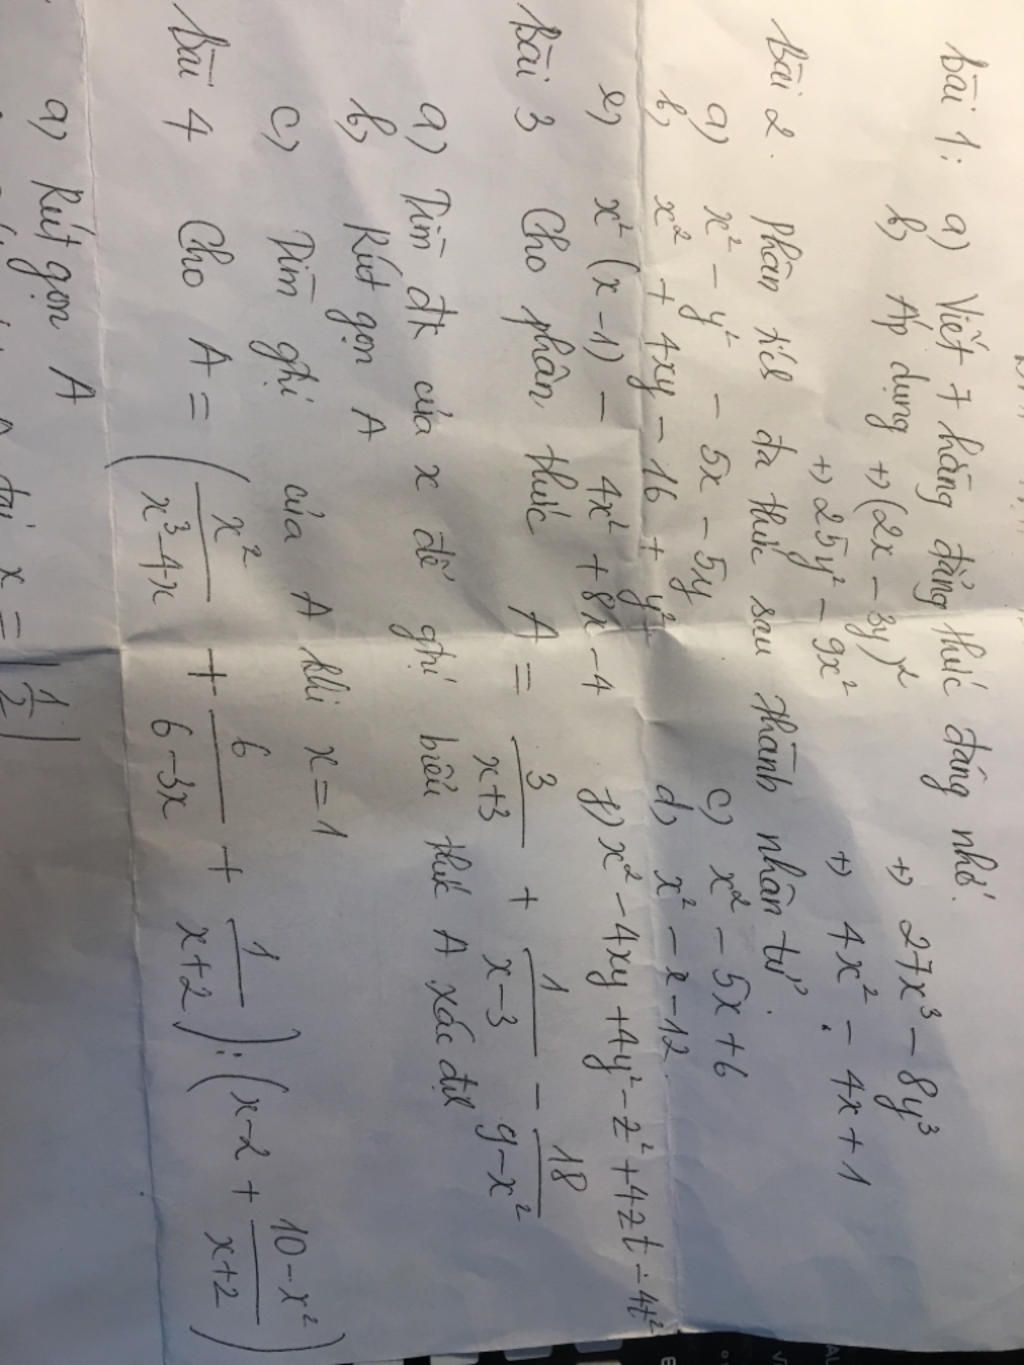 Bài 1: a) Viết 7 hằng đẳng thức đáng nhớ.
b) Áp dụng +) (2x - 3y)² +) 27x³ - 8y³
+) 25y² - 9x² +) 4x² - 4x + 1
Bài 2. Phân tích đa thức sau thành nhân tử.
a) x² - y² - 5x - 5y c) x² - 5x + 6
b) x² + 4xy - 16 + y² d) x² - x - 12
e) x² (x - 1) - 4x² + 8x - 4 f) x² - 4xy + 4y² - z² + 4zt - 4t²
Bài 3 Cho phân thức A = 3/(x+3) + 1/(x-3) - 18/(9-x²)
a) Tìm đk của x để ghị biểu thức A xác địh
b) Rút gọn A
c) Tìm ghị của A khi x = 1
Bài 4 Cho A = (x²/(x³-4x) + 6/(6-3x) + 1/(x+2)) : (x - 2 + (10-x²)/(x+2))
a) Rút gọn A
x = |1/2|